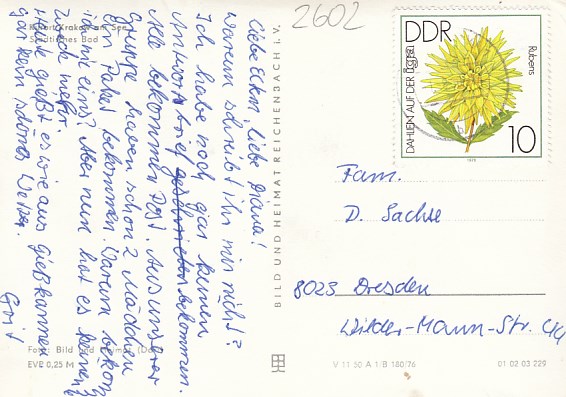 2602
Krakow am See
Städtisches Bad
Liebe Eltern, liebe Diana!
Warum schreibt Ihr mir nicht?
Ich habe noch gar keinen
Antwortbrief geschrieben bekommen.
Alle bekommen Post. Aus unserer
Gruppe haben schon 2 Mädchen
ein Paket bekommen. Warum bekomm
ich nie eins? Aber nun hat es keinen
Zweck mehr.
Heute gießt es wie aus Gießkannen
gar kein schönes Wetter.
Grit
Foto: Bild und Heimat
EVP 0,25 M
BILD UND HEIMAT REICHENBACH i. V.
DDR
DAHLIEN AUF DER iga
Rubens
10
1979
Fam.
D. Sachse
8023 Dresden
Wilder-Mann-Str. 44
V 11 50 A 1 B 180/76
01 02 03 229